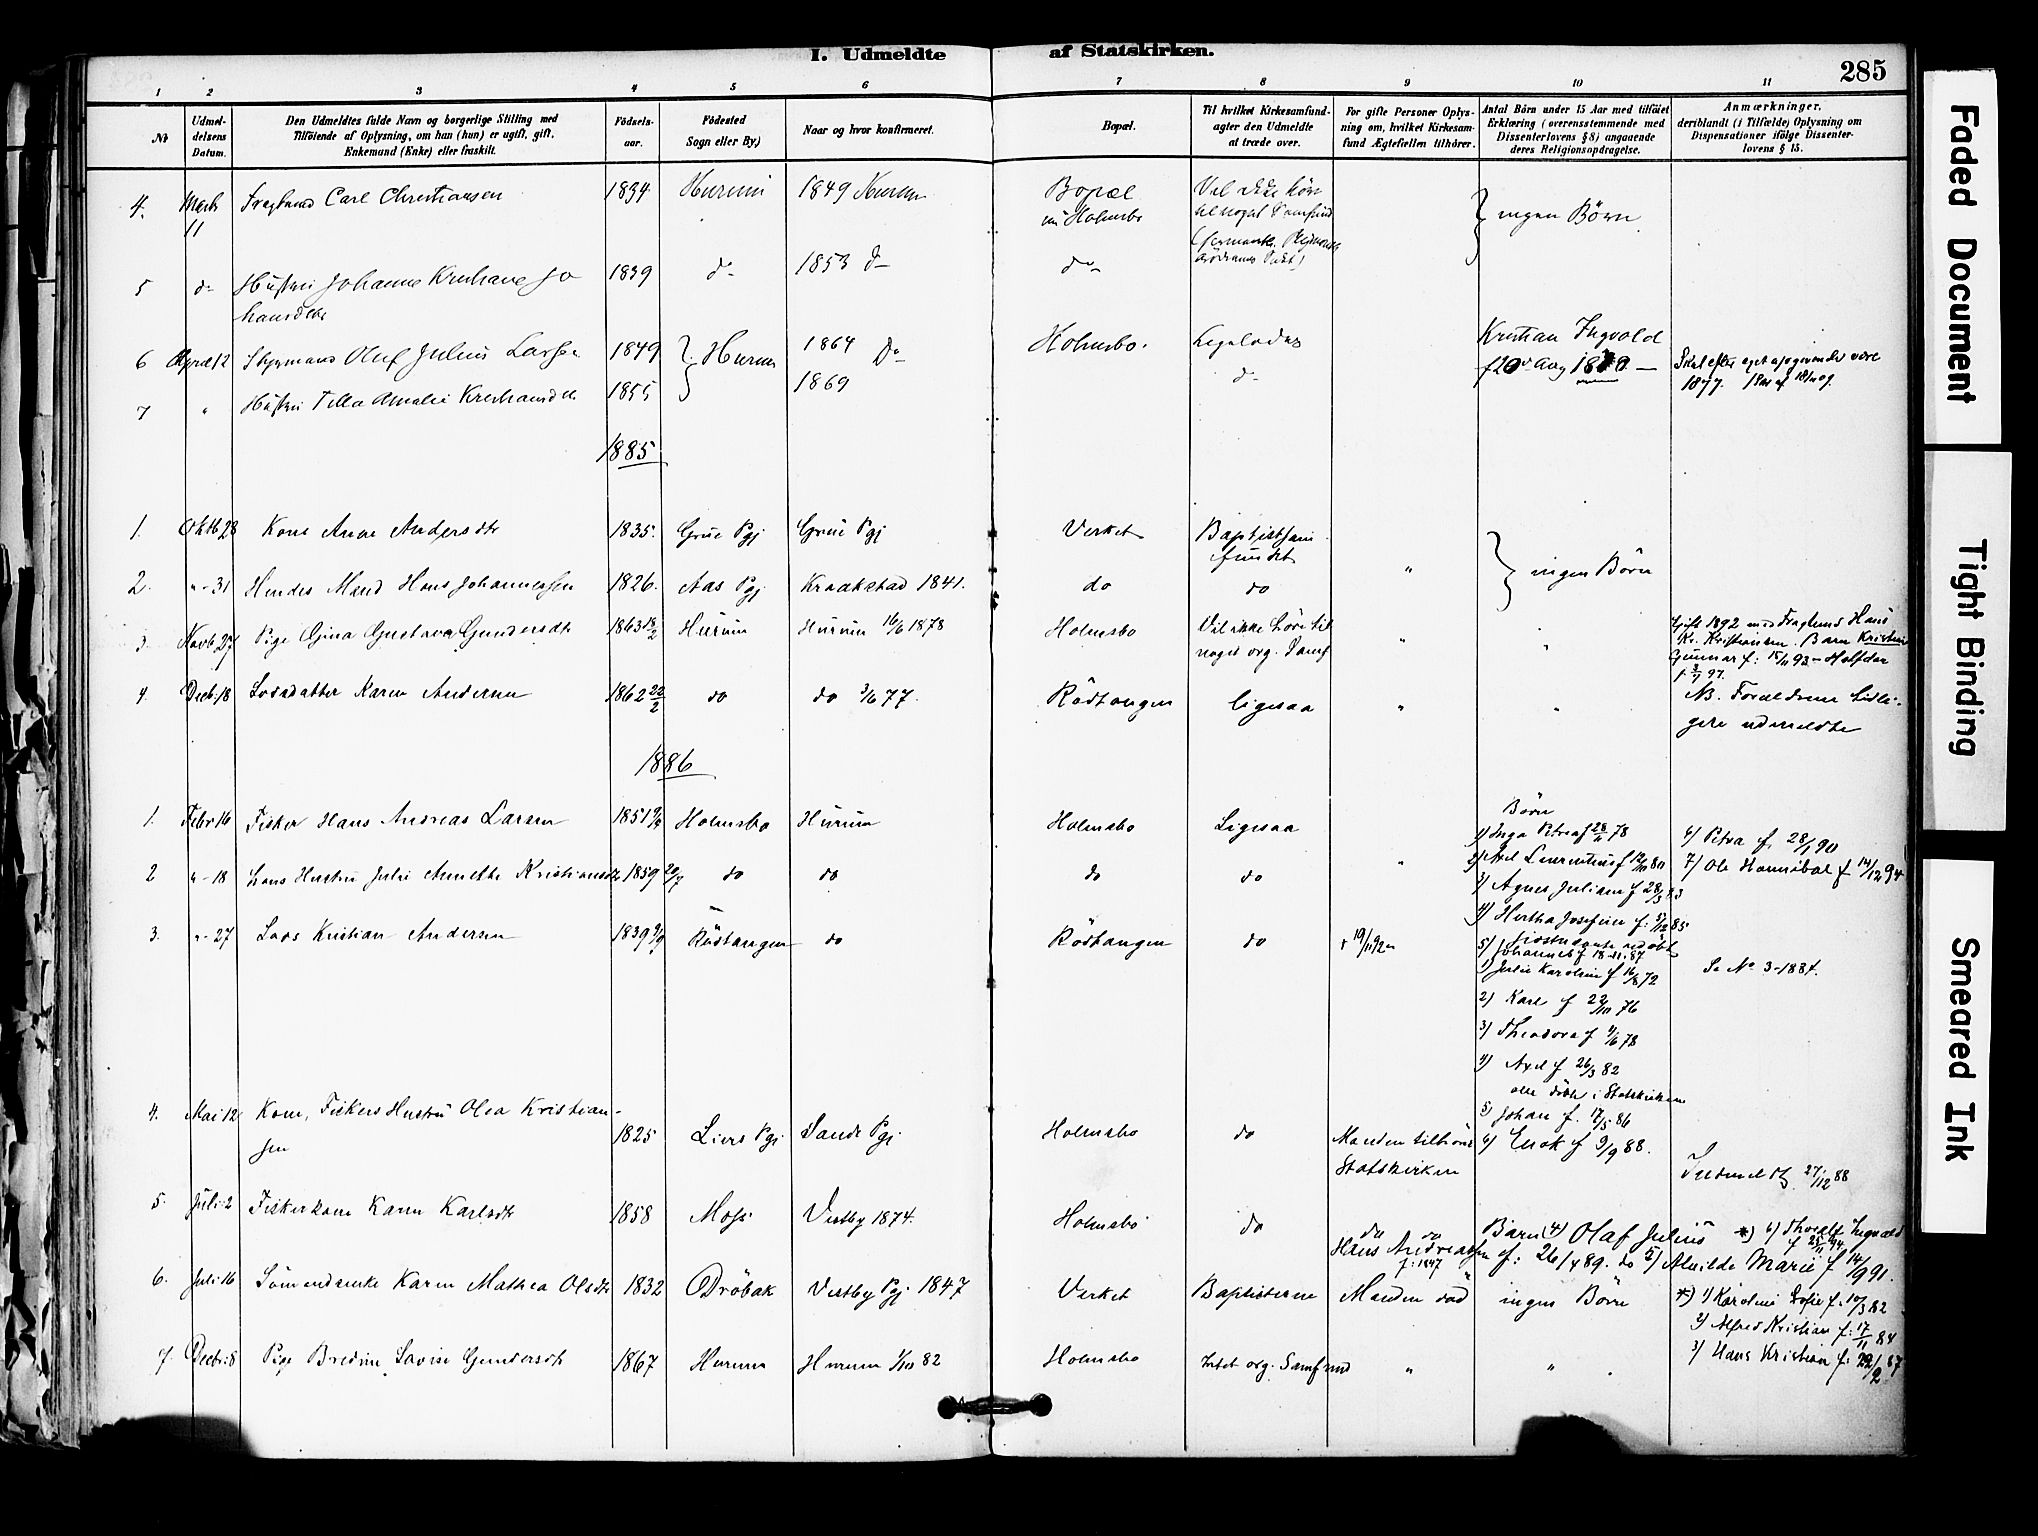 I. Udmeldte af Statskirken.
285
1 2 3 4 5 6 7 8 9 10 11
No
Udmel-
delsens
Datum.
Den Udmeldtes fulde Navn og borgerlige Stilling med
Tilföiende af Oplysning, om han (hun) er ugift, gift,
Enkemand (Enke) eller fraskilt.
Födsels-
aar.
Födested
Sogn eller By)
Naar og hvor konfirmeret.
Bopæl.
Til hvilket Kirkesamfund-
agter den Udmeldte
at træde over.
For gifte Personer Oplys-
ning om, hvilket Kirkesam-
fund Ægtefællen tilhörer.
Antal Börn under 15 Aar med tilföiet
Erklæring (overensstemmende med
Dissenterlovens § 8) angaaende
deres Religionsopdragelse.
Anmærkninger,
deriblandt (i Tilfælde) Oplysning om
Dispensationer ifölge Dissenter-
lovens § 15.
4. Marts 11 Carl Christiansen 1834 Hurum 1849 Hurum Bopæl Holmsbo ingen Börn
5 do Hustru Johanne Kristiane Jo
hansdtr 1839 do 1853 do do
6 April 12 Styrmand Oluf Julius Larsen 1849 Hurum 1864 Do Holmsbo. Ligeledes Kristian Ingvold
f 20de Aug 1870
1877.
7 " Hustru Amalie Kristiansdtr 1855 1869 do
1885
1. Oktb 28 Kone Anne Andersdtr 1835. Grue Pgj Grue Pgj Verket Baptistsam
fundet
2. "-31 Hendes Mand Hans Johannessen 1826. Aas Pgj Kraakstad 1841. do do " ingen Börn
3. Novb 27 Pige Gina Gustava Gundersdtr 1863 18/2 Hurum Hurum 16/6 1878 Holmsbo Vil ikke höre til
noget org. Samf " "
Gift 1892 med Fragtmd Hans
Kr. Kristiansen. Barn Kristian
Gunnar f: 15/11 92 - Halfdan
4. Decb. 18 Losdatter Karen Andersen 1862 22/2 do do 3/6 77. Rödtangen ligesaa " "
NB. Foreldrene tidli-
gere udmeldte
1886
1. Febr 16 Fisker Hans Andreas Larsen 1851 Holmsbo Hurum Holmsbo Ligesaa
Börn
1) Inga Petrea f 78
6) Petra f. 28/1 90
2 "-18 Hans Hustru Julie Annette Kristiansdtr 1859 20/7 do do do do "
2) Axel Laurentius f 80
7) Ole Hannibal f 14/12 94
3) Agnes Juliane f 28/3 83
4) Hertha Josefine f: 5/12 85
5) Johannes f 18-11-87
3. "-27 Lods Kristian Andersen 1839 Rödtangen do Rödtangen do
1) Julie Karoline f 16/8 72
Se No 3-1884.
2) Karl f 22/10 76
3) Theodora f 4/6 78
4) Axel f 26/3 82
alle döbte i Statskirken
5) Johan f. 17/5 86
6) Enok f 9/9 88.
4. Mai 12 Kone, Fiskers Hustru Olea Kristian-
sen 1825 Liers Pgj Sande Pgj Holmsbo do Manden tilhörer
Statskirken
Indmeldt 27/12 88
5. Juli 2 Fiskerkone Karen Karlsdtr 1858 Moss Vestby 1874. Holmsbo do do do
Hans Andreassen
f: 1847
Barn (4) Olaf Julius
f: 26/4 89. do 5) Alvilde Marie f 14/9 91.
*) 6) Thoralf Ingvald
6. Juli 16 Sömandsenke Karen Mathea Olsdtr 1832 Dröbak Vestby Pgj 1847 Verket Baptisterne Manden död ingen Börn
*) 1) Karoline Sofie f. 10/3 82
2) Alfred Kristian f: 17/11 84
3) Hans Kristian f: 22/2 87
7. Decbr: 8 Pige Bredine Lovise Gundersdtr 1867 Hurum Hurum 1/10 82 Holmsbo Intet org. Samfund " "
Faded Document
Tight Binding
Smeared Ink